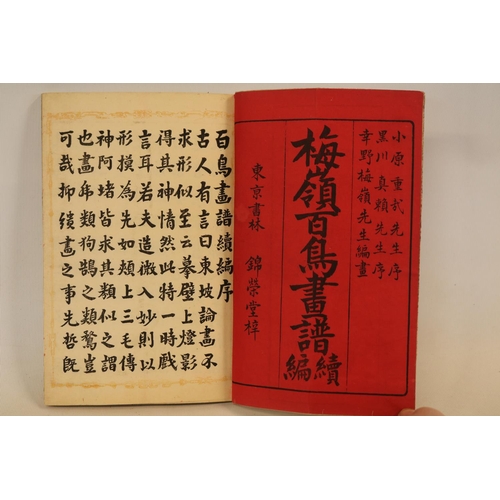 小原重哉先生序
黒川真頼先生序
幸野楳嶺先生編畫
梅嶺百鳥畫譜
續編
東京書林 錦榮堂梓
百鳥畫譜續編序
古人有言曰東坡論畫不
求形似至云摹壁上燈影
得其神情然此特一時戲
言耳若夫造微入妙則以
形摸為先如頰上三毛傳
神阿堵皆求其類似之謂
也畫乕類狗鵠之類鶩豈
可哉抑繢畫之事先哲既